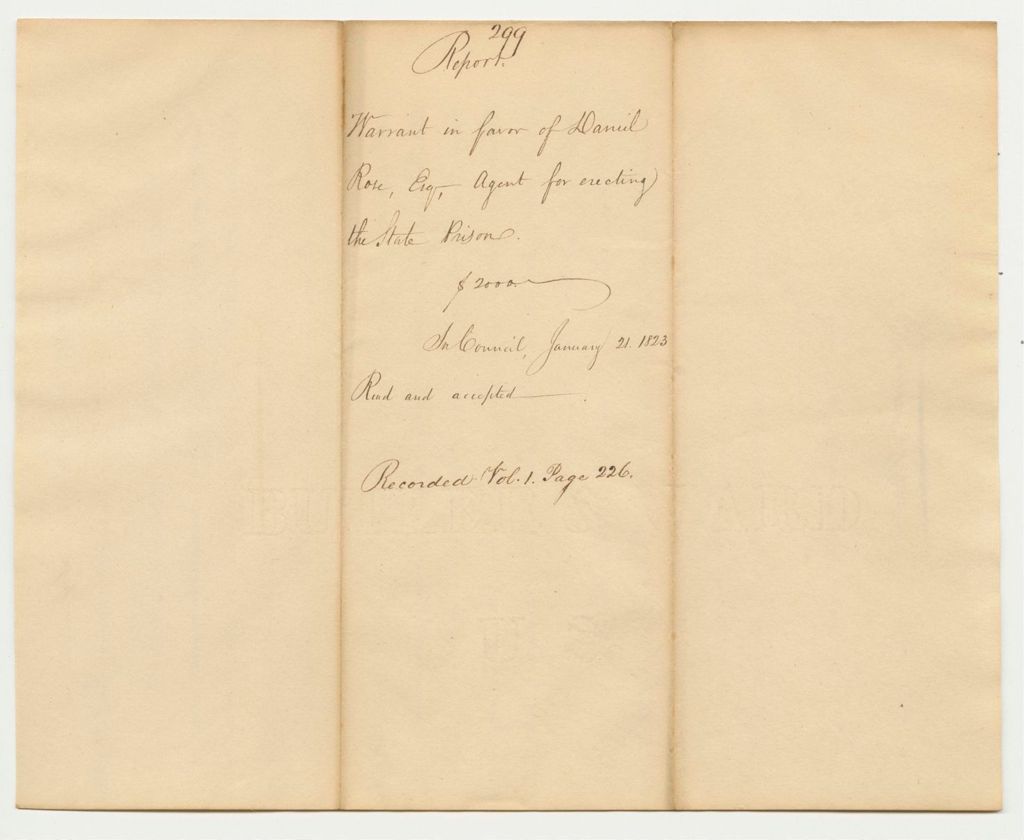 299
Report.
Warrant in favor of Daniel
Rose, Esq, Agent for erecting
the State Prison.
$2000.
In Council, January 21. 1823
Read and accepted
Recorded Vol. 1. Page 226.